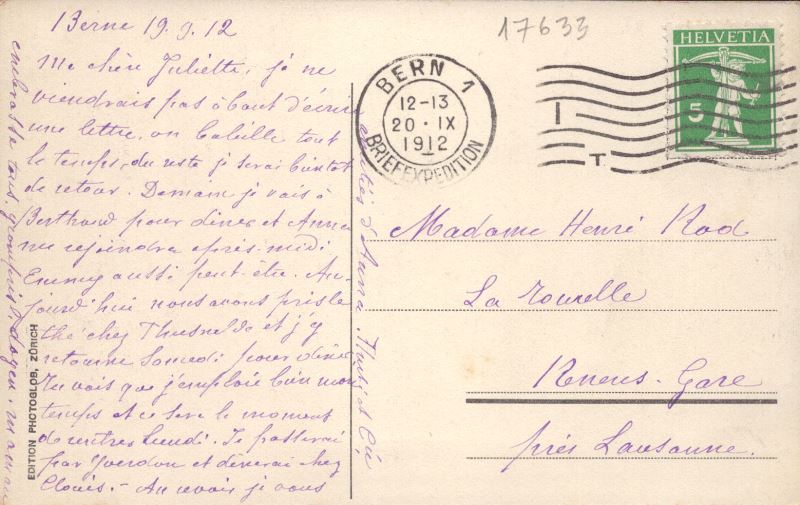 Berne 19.9.12
17633
Ma chère Juliette, je ne
viendrais pas à bout d'écrire
une lettre, on babille tout
le temps, du reste je serai bientôt
de retour. Demain je vais à
pour dîner et Anna
me rejoindra après-midi
Emmy aussi peut-être. Au-
jourd'hui nous avons pris le
thé chez Thusnelda et j'y
retourne Samedi pour dîner
Tu vois que j'emploie bien mon
temps et ce sera le moment
de rentrer Lundi. Je passerai
par Yverdon et dînerai chez
Clovis. - Au revoir je vous
embrasse tous, maman
amitiés d'Anna, Thusn. et Cie
EDITION PHOTOGLOB, ZÜRICH
BERN 1
12-13
20. IX
1912
BRIEFEXPEDITION
I
T.
HELVETIA
5
Madame Henri Rod
La Tourelle
Renens-Gare
près Lausanne.